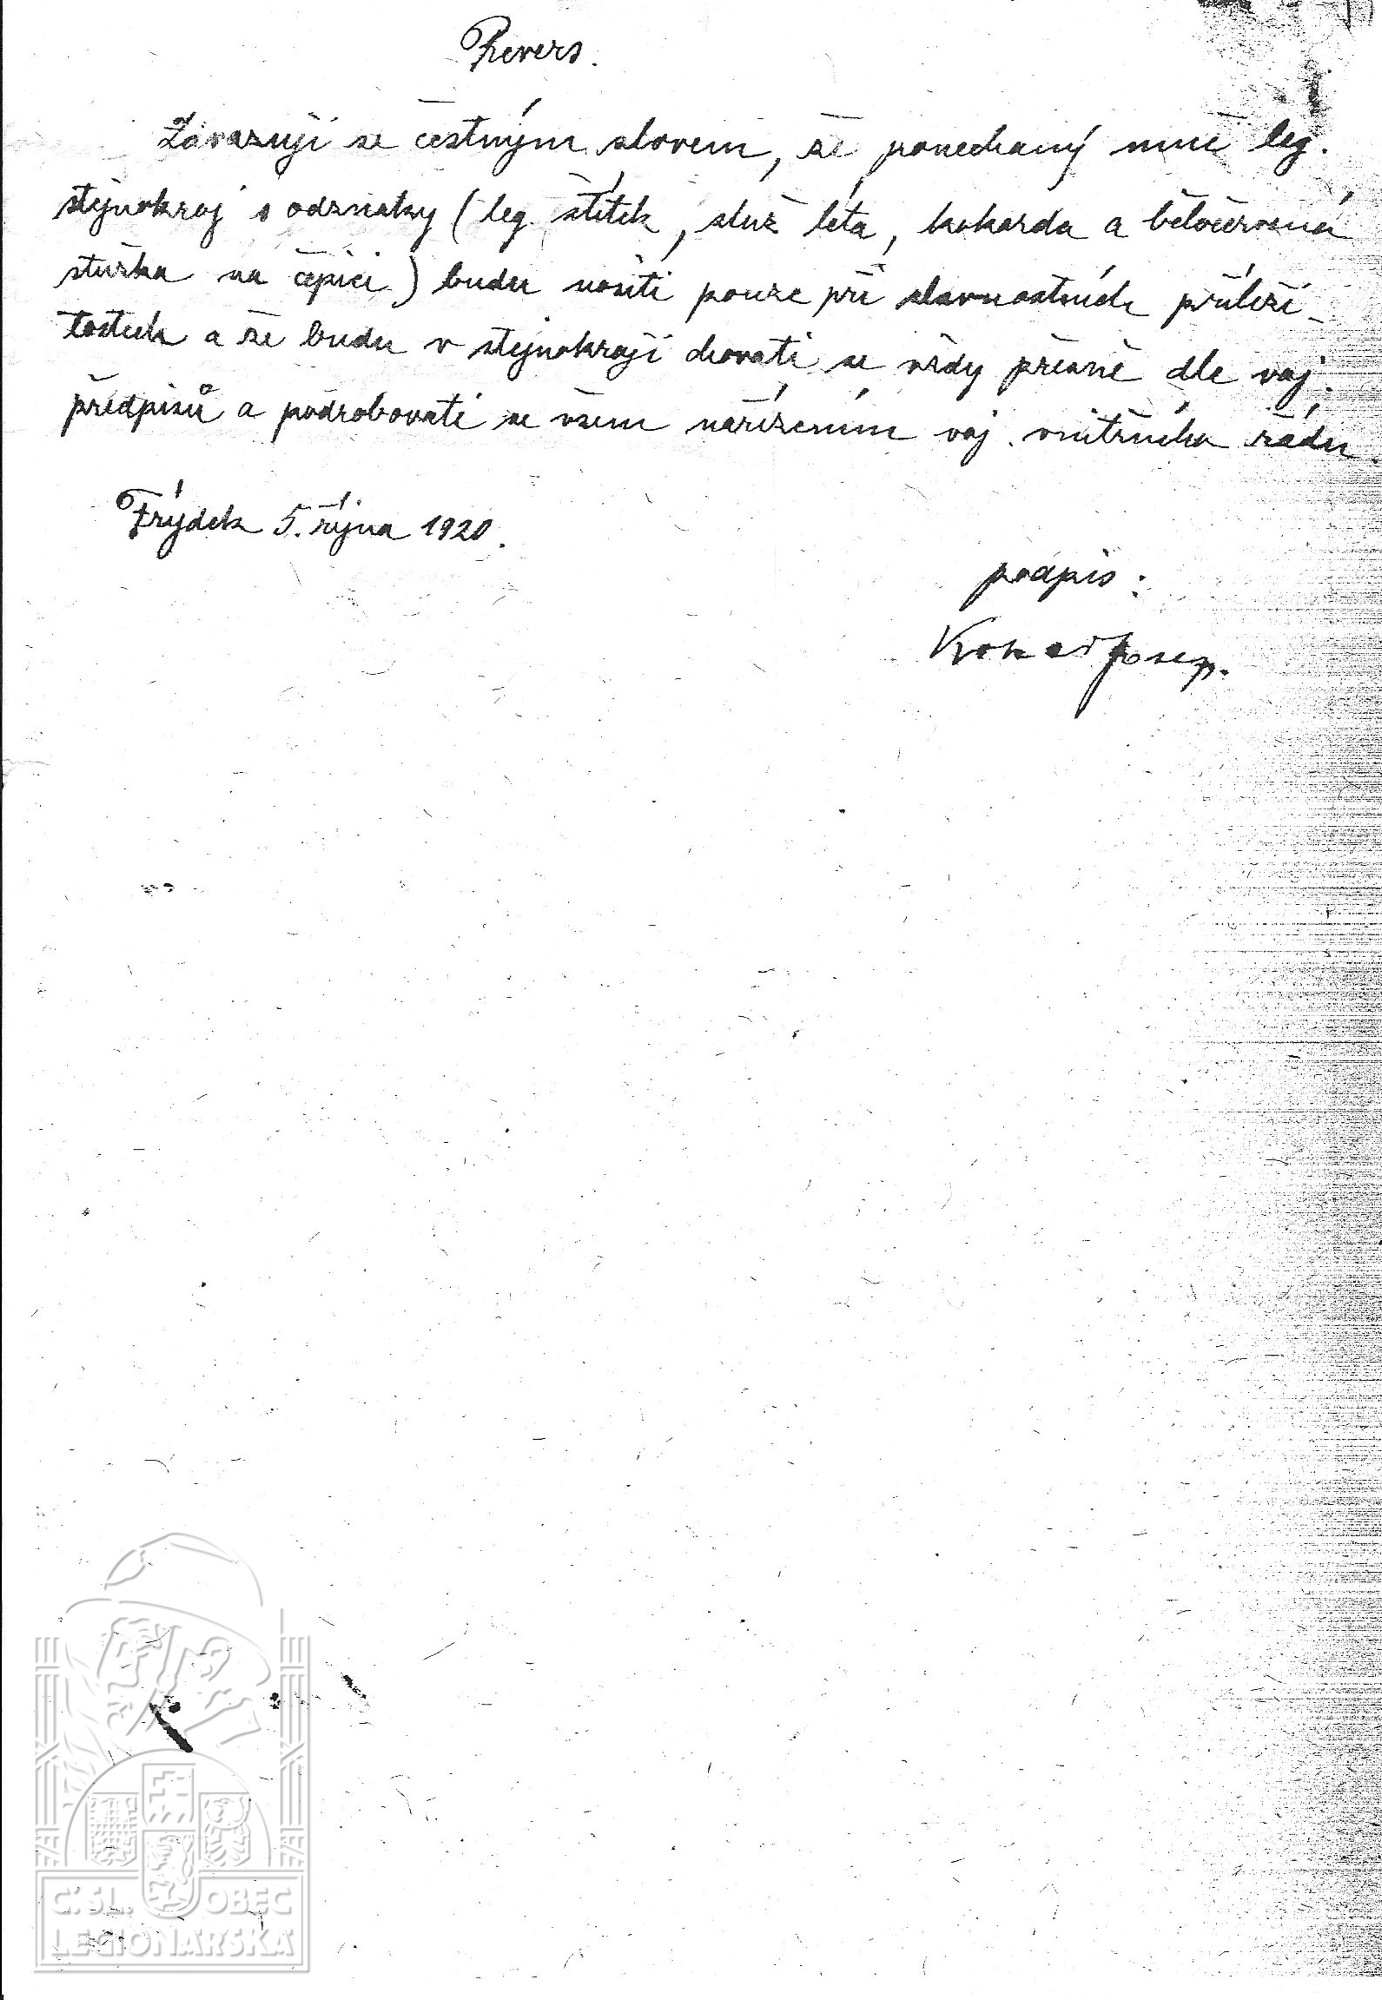 Revers.
Zavazuji se čestným slovem, že ponechaný mně leg.
stejnokroj s odznaky (leg. štítek, služ léta, kokarda a běločervená
stužka na čepici) budu nositi pouze při slavnostních příleži-
tostech a že budu v stejnokroji chovati se vždy přesně dle voj.
předpisů a podrobovati se všem nařízením voj. vnitřního řádu.
Frýdek 5. října 1920.
podpis:
Josef.
Č. SL. OBEC
LEGIONÁŘSKÁ